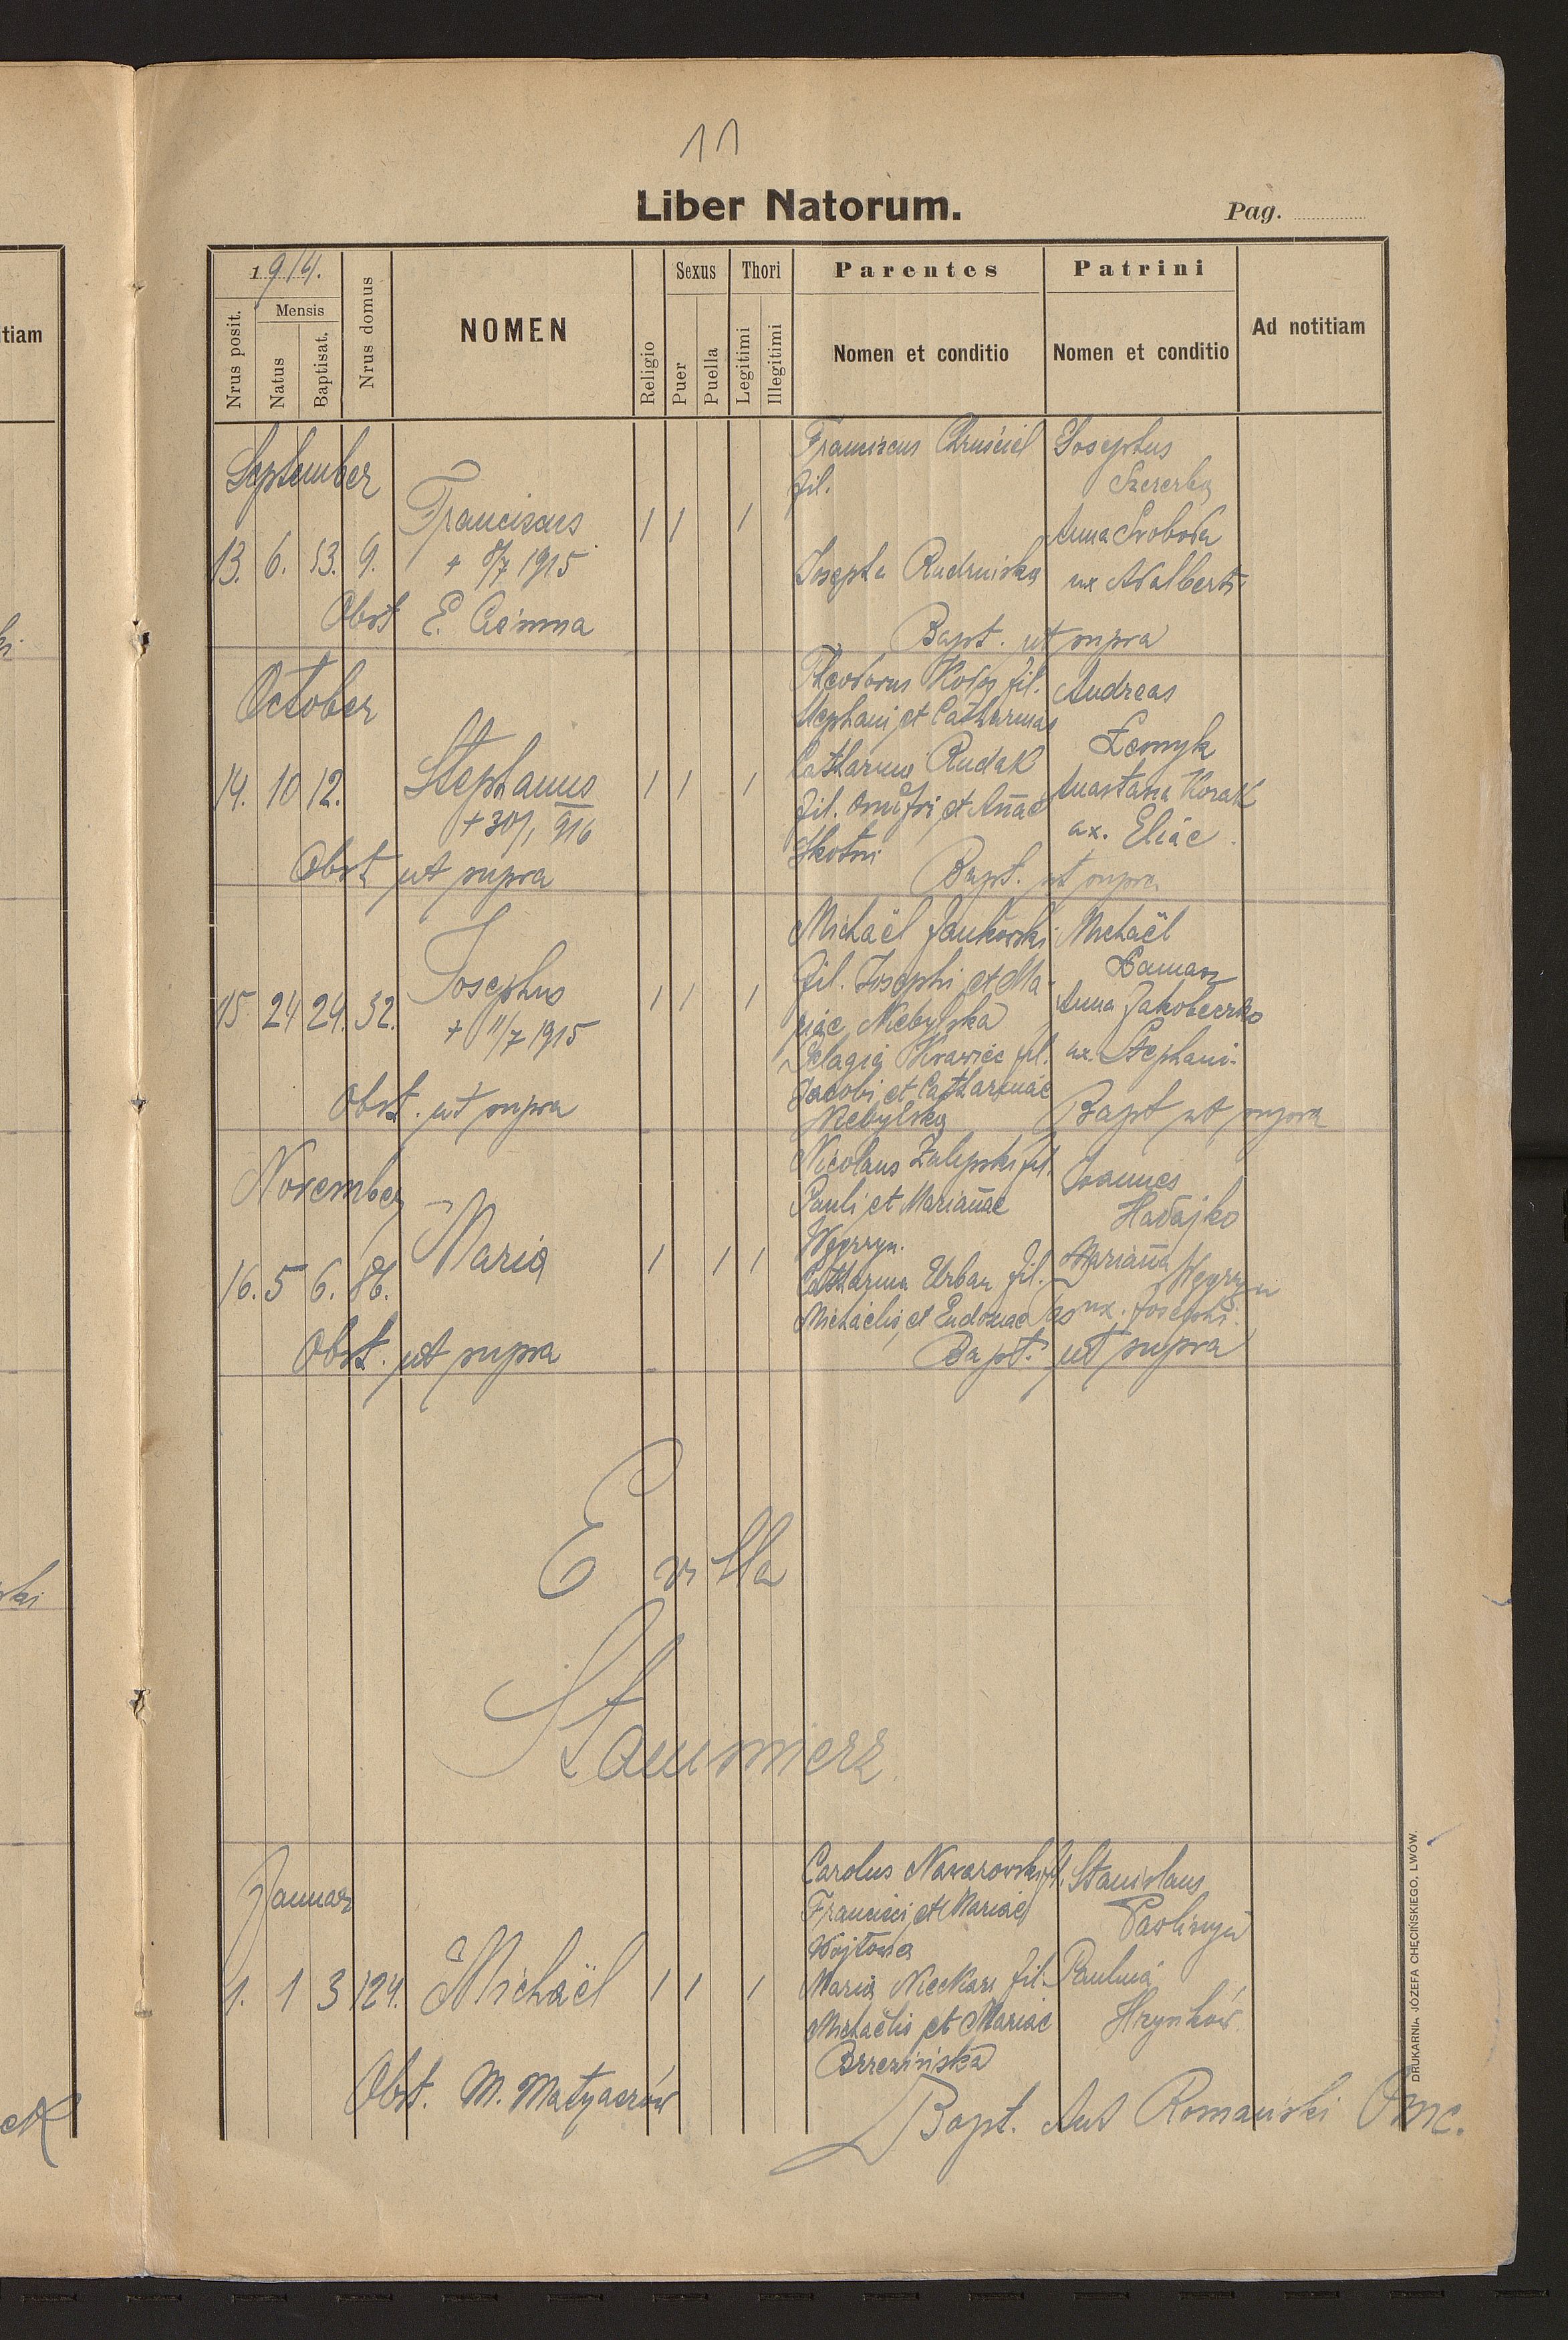 11
Liber Natorum.
Pag.
1914.
Nrus posit.
Mensis
Natus
Baptisat.
Nrus domus
NOMEN
Religio
Sexus
Puer
Puella
Thori
Legitimi
Illegitimi
Parentes
Nomen et conditio
Patrini
Nomen et conditio
Ad notitiam
tiam
September
13. 6. 13. 9.
Franciscus
+ 8/7 1915
Obst E.
Franciscus Chruściel
fil.
Josepha Rudnicka
Josephus
Szczerba
Anna Svoboda
ux Adalberti
Bapt. ut supra
October
14. 10 12.
Stephanus
+ 30/1 916
Obst ut supra
Theodorus fil.
Stephani et Catharinae
Catharina Rudak
fil. Onufri et Anae
Skotni
Andreas
Anastasia Kozak
ux. Eliae.
Bapt. ut supra
15 24 24. 32.
Josephus
+ 11/7 1915
Obst. ut supra
Michaël Jankowski
fil. Josephi et Ma-
riae Niebylska
Pelagia Krawiec fil.
Jacobi et Catharinae
Niebylska
Michaël
Anna
ux. Stephani
Bapt ut supra
November
16. 5 6. 86.
Maria
Obst. ut supra
Nicolaus Zalipski fil.
Pauli et Marianae
Węgrzyn.
Catharina Urban fil.
Michaelis et Eudoxiae
Joannes
Hadajko
Mariana Węgrzyn
ux. Josephi.
Bapt. ut supra
E villa
Stanimierz
Januar
1. 1 3 124.
Michaël
Obst. M. Matyaszów
Carolus Nazarowski fil.
Francisci et Mariae
Wojtowa
Maria Nieckarz fil.
Michaëlis et Mariae
Brzezińska
Stanislaus
Pawliszyn
Paulina
Hrynków
Bapt. Ant Romański
DRUKARNIA JÓZEFA CHĘCIŃSKIEGO, LWÓW.